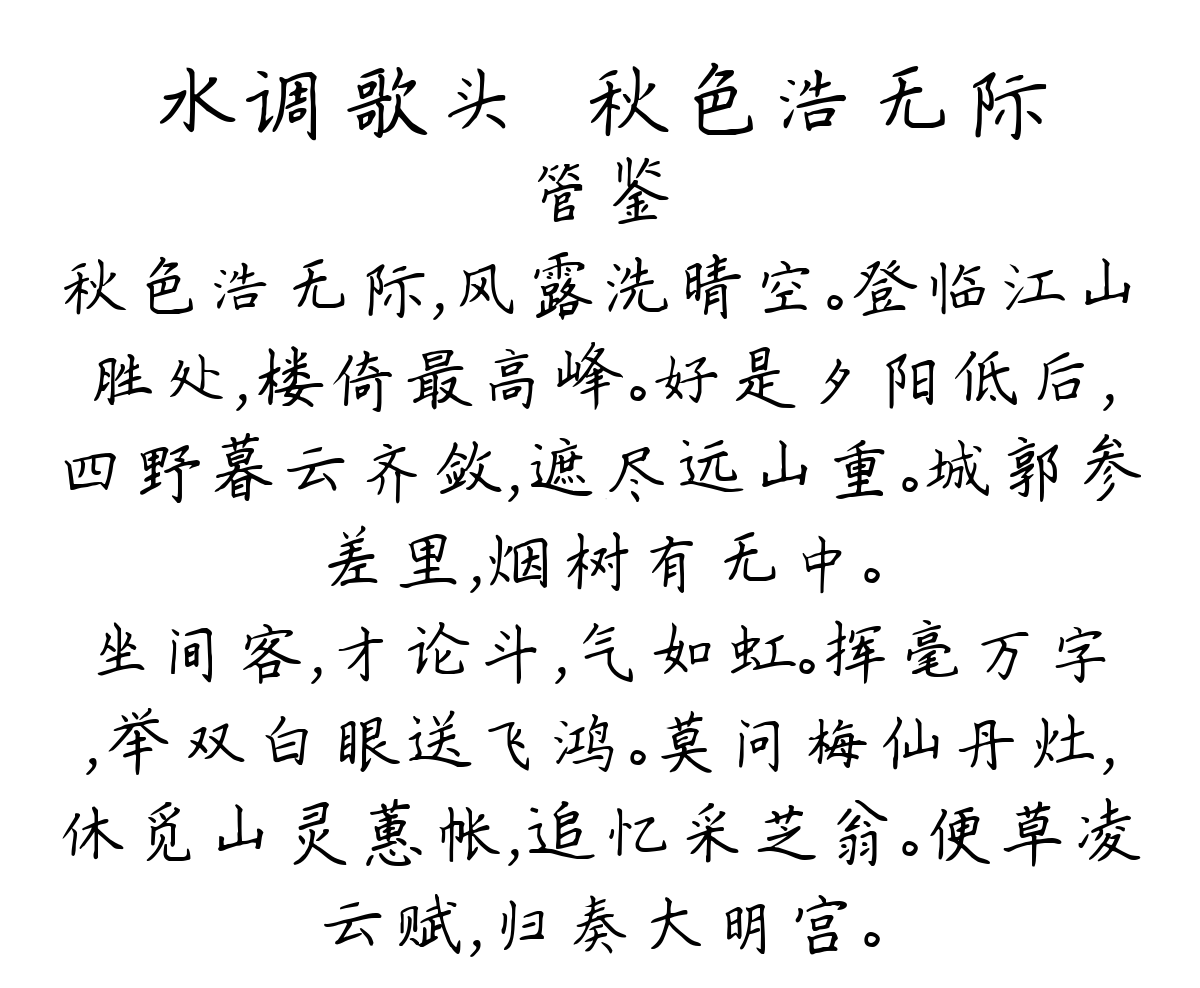 水调歌头 秋色浩无际
管鉴
秋色浩无际,风露洗晴空。登临江山
胜处,楼倚最高峰。好是夕阳低后,
四野暮云齐敛,遮尽远山重。城郭参
差里,烟树有无中。
坐间客,才论斗,气如虹。挥毫万字
,举双白眼送飞鸿。莫问梅仙丹灶,
休觅山灵蕙帐,追忆采芝翁。便草凌
云赋,归奏大明宫。